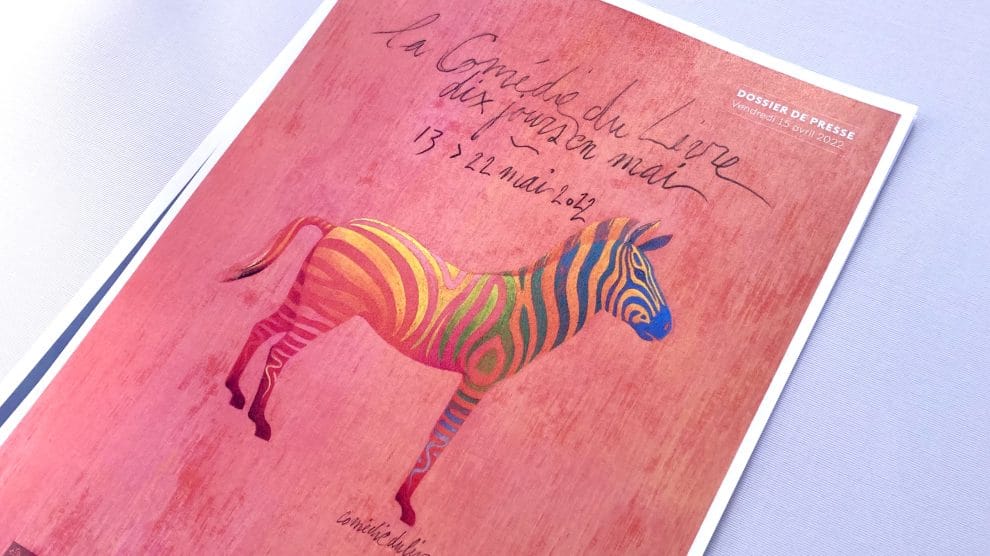 la Comédie du Livre
dix jours en mai
13 > 22 mai 2022
DOSSIER DE PRESSE
Vendredi 15 avril 2022